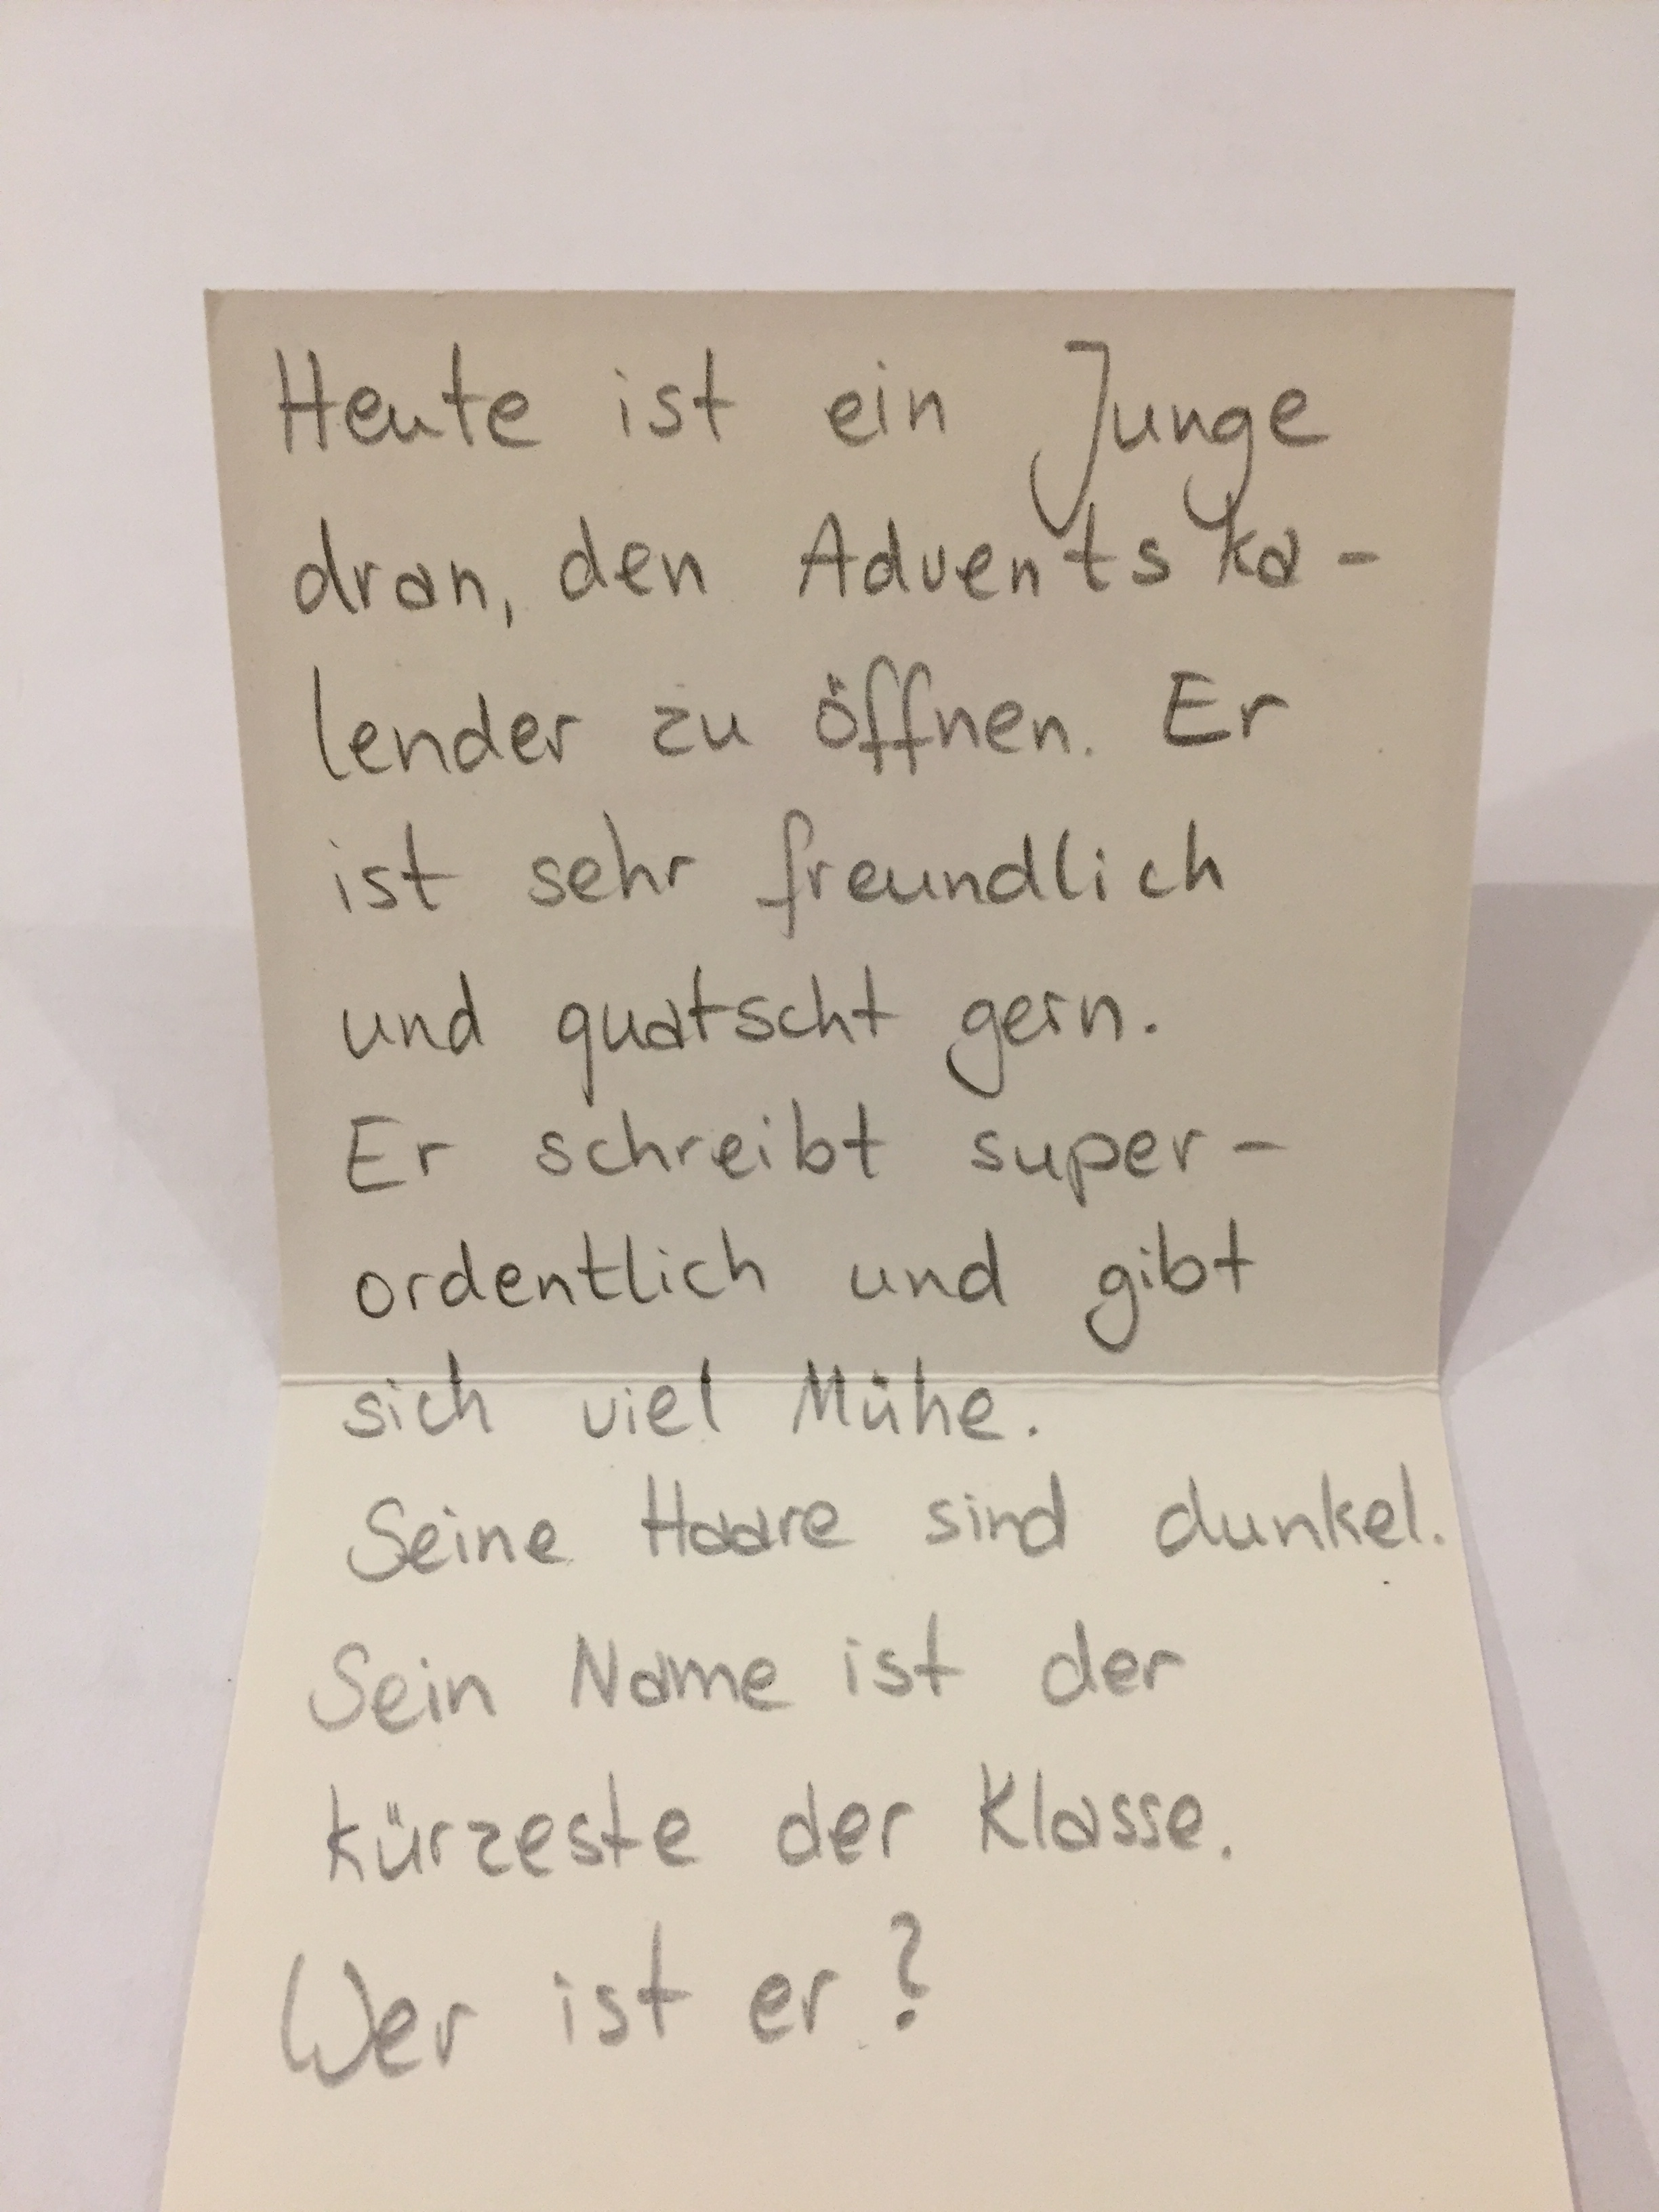 Heute ist ein Junge
dran, den Adventska-
lender zu öffnen. Er
ist sehr freundlich
und quatscht gern.
Er schreibt super-
ordentlich und gibt
sich viel Mühe.
Seine Haare sind dunkel.
Sein Name ist der
kürzeste der Klasse.
Wer ist er?